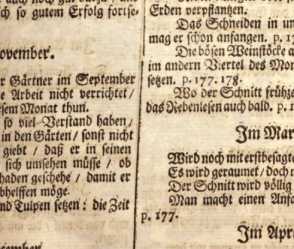 ch so gutem Erfolg fortse-
ovember.
r Gärtner im September
e Arbeit nicht verrichtet/
sem Monat thun.
so viel Verstand haben/
in den Gärten/ sonst nicht
giebt / daß er in seinen
sich umsehen müsse / ob
haden geschehe / damit er
bhelffen möge.
nd Tulpen setzen: die Zeit
Erden verpflantzen.
Das Schneiden in un
mag er schon anfangen. p. 1
Die bösen Weinstöcke a
im andern Viertel des Mo
setzen. p. 177. 178.
Wo der Schnitt frühze
das Rebenlesen auch bald. p. 1
Im Mar
Wird noch mit erstbesagte
Es wird geraumet/ doch n
Der Schnitt wird völlig
Man macht einen Anfa
p. 177.
Im Apr